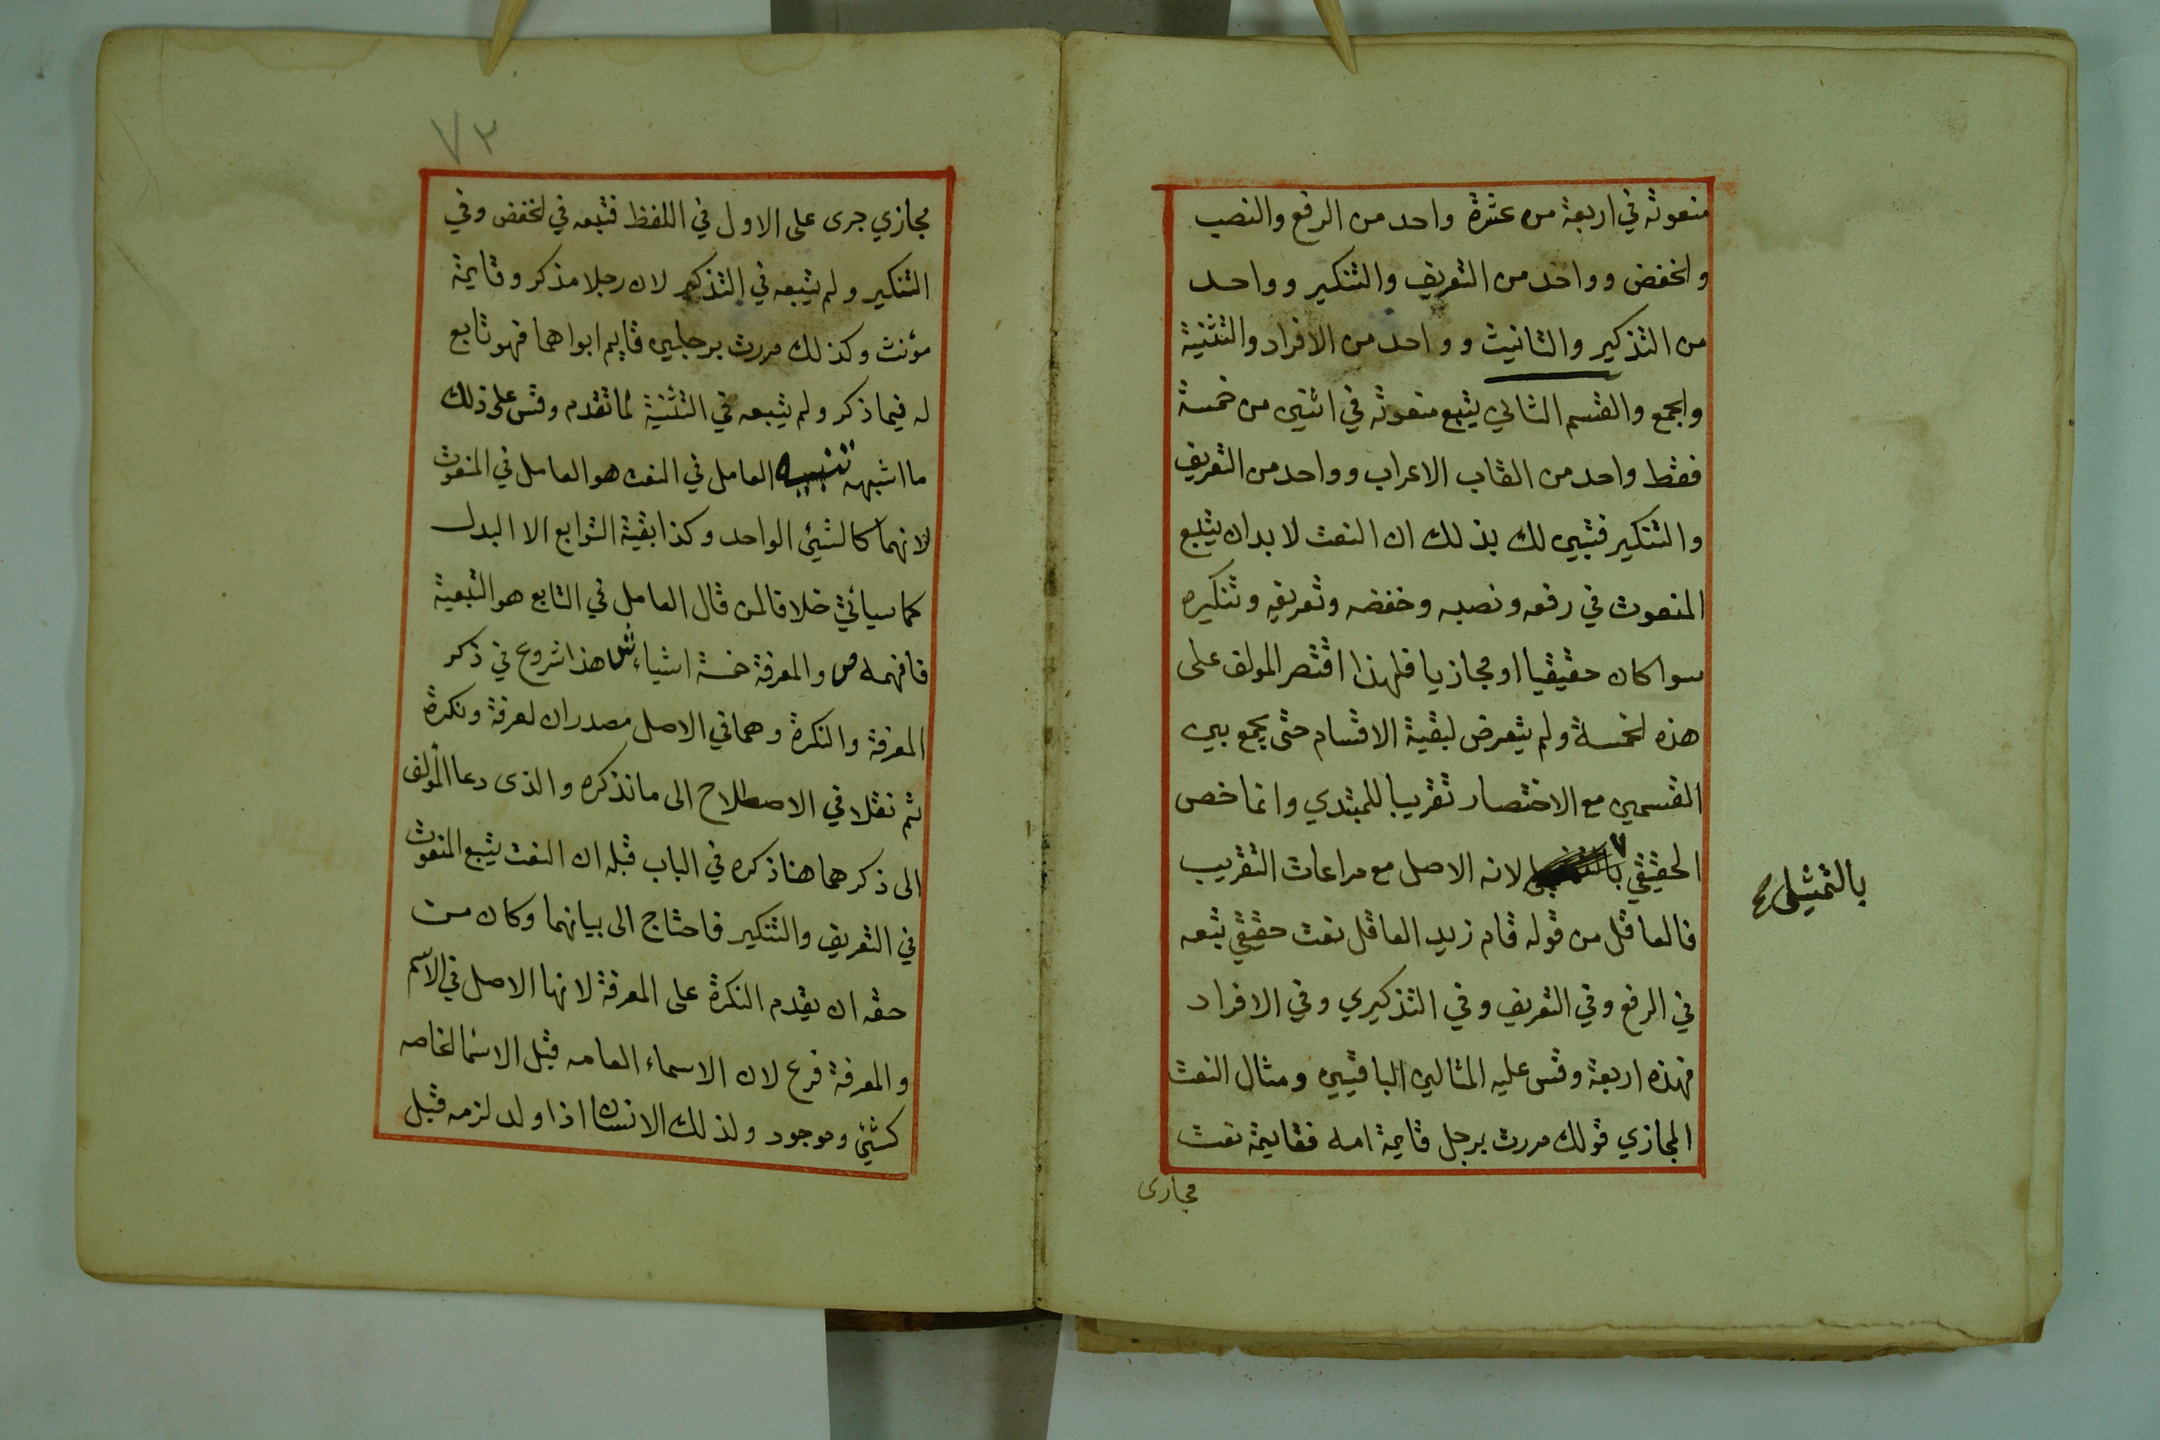 منعوته في اربعة من عشرة واحد من الرفع والنصب
والخفض وواحد من التعريف والتنكير وواحد
من التذكير والتانيث وواحد من الافراد والتثنية
والجمع والقسم الثاني يتبع منعوته في اثنين من خمسة
فقط واحد من القاب الاعراب وواحد من التعريف
والتنكير فتبين لك بذلك ان النعت لا بد ان يتبع
المنعوت في رفعه ونصبه وخفضه وتعريفه وتنكيره
سوا كان حقيقيا او مجازيا فلهذا اقتصر المولف على
هذه الخمسة ولم يتعرض لبقية الاقسام حتى يجمع بين
القسمين مع الاختصار تقريبا للمبتدي وانما خص
الحقيقي لانه الاصل مع مراعات التقريب
بالتمثيل صح
فالعاقل من قوله قام زيد العاقل نعت حقيقي تبعه
في الرفع وفي التعريف وفي التذكيري وفي الافراد
فهذه اربعة وقس عليه المثالين الباقيين ومثال النعت
المجازي قولك مررت برجل قايمة امه فقايمة نعت
مجازى
٧٢
مجازي جرى على الاول في اللفظ فتبعه في الخفض وفي
التنكير ولم يتبعه في التذكير لان رجلا مذكر وقايمة
مؤنث وكذلك مررت برجلين قايم ابواهما فهو تابع
له فيما ذكر ولم يتبعه في التثنية لما تقدم وقس على ذلك
ما اشبهه تنبيه العامل في النعت هو العامل في المنعوت
لانهما كالشيئ الواحد وكذا بقية التوابع الا البدل
كما سيائتي خلافا لمن قال العامل في التابع هو التبعية
فافهمه ص والمعرفة خمسة اشياء ش هذا شروع في ذكر
المعرفة والنكرة وهما في الاصل مصدران لعرفة ونكرة
ثم نقلا في الاصطلاح الى ما نذكره والذى دعا المؤلف
الى ذكرهما هنا ذكره في الباب قبله ان النعت يتبع المنعوت
في التعريف والتنكير فاحتاج الى بيانهما وكان من
حقه ان يقدم النكرة على المعرفة لانها الاصل في الاسم
والمعرفة فرع لان الاسماء العامه قبل الاسما الخاصه
كشيئ وموجود ولذلك الانسان اذا ولد لزمه قبل